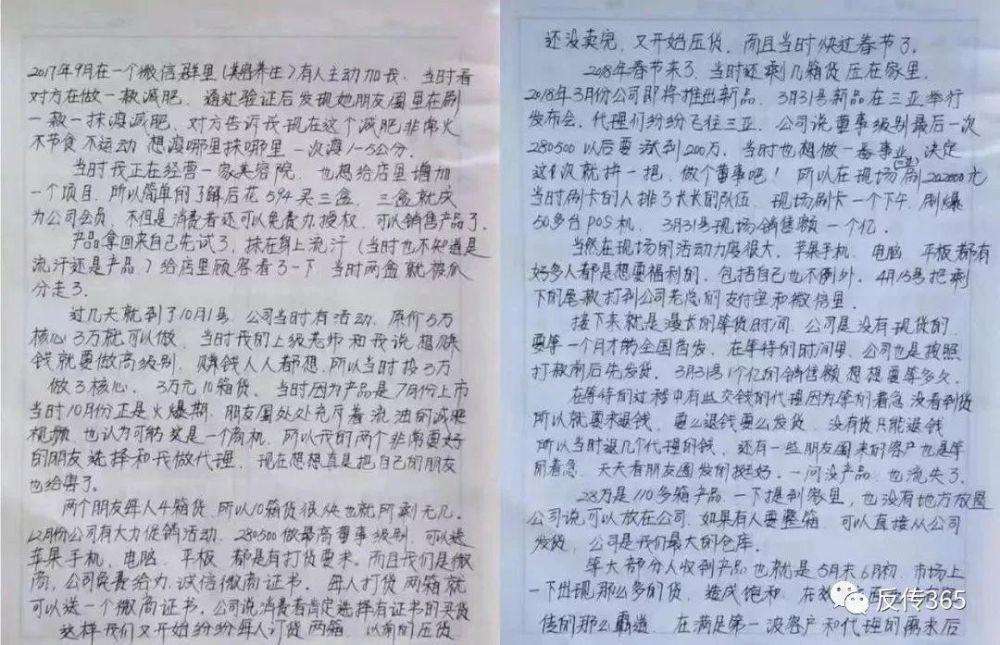 2017年9月在一个微信群里(美容养生)有人主动加我、当时看
对方在做一款减肥、通过验证后发现她朋友圈里在刷
一款一抹瘦减肥、对方告诉我现在这个减肥非常火
不节食 不运动 想瘦哪里抹哪里 一次瘦1-5公分.
当时我正在经营一家美容院、也想给店里增加
一个项目、所以简单的了解后花594买三盒、三盒就成
为公司会员、不但是消费者还可以免费办授权、可以销售产品了.
产品拿回来自己先试了、抹在身上流汗(当时也不知道是
流汗还是产品)给店里顾客看了一下 当时两盒就被瓜
分走了.
过几天就到了10月1号、公司当时有活动、原价5万
核心3万就可以做、当时我们上级老师和我说想赚
钱就要做高级别、赚钱人人都想、所以当时投3万
做了核心、3万元10箱货、当时因为产品是7月份上市
当时10月份正是火爆期、朋友圈处处充斥着流油的减肥
视频、也认为可能这是一个商机、所以我的两个非常要好
的朋友选择和我做代理、现在想想真是把自己的朋友
也给害了。
两个朋友每人4箱货、所以10箱货很快也就所剩无几.
12月份公司有大力促销活动、280500做最高董事级别、可以送
苹果手机、电脑、平板 都是有打货要求、而且我们是微
商、公司免费给力、诚信微商证书、每人打货两箱就
可以送一个微商证书、公司说消费者肯定选择有证书的买货
这样我们又开始纷纷每人订货两箱、以前的压货
还没卖完、又开始压货、而且当时快过春节了.
2018年春节来了、当时还剩几箱货压在家里.
2018年3月份公司即将推出新品、3月31号新品在三亚举行
发布会、代理们纷纷飞往三亚、公司说董事级别最后一次
280500 以后要涨到200万、当时也想做一番事业、决定
这次就拼一把、做个董事吧!所以在现场刷202000元
当时刷卡的人排了长长的队伍、现场刷卡一个下午、刷爆
50多台POS机、3月31号现场销售额一个亿.
当然在现场的活动力度很大、苹果手机、电脑 平板都有
好多人都是想要福利的、包括自己也不例外、4月15号把剩
下的尾款打到公司老总的支付宝和微信里.
接下来就是漫长的等货时间、公司是没有现货的
要等一个月才能全国首发、在等待的时间里、公司也是按照
打款前后先发货、3月31号1个亿的销售额想想要等多久.
在等待的过程中有些交钱的代理因为等的着急没看到货
所以就要求退钱、要么退钱要么发货、没有货只能退钱
所以当时退几个代理的钱、还有一些朋友圈来的客户也是等
的着急、天天看朋友圈发的挺好、一问没产品、也流失了.
28万是110多箱产品、一下提到家里、也没有地方放置
公司说可以放在公司、如果有人要整箱、可以直接从公司
发货、公司是我们最大的仓库.
等大部分人收到产品也就是5月末6月初、市场上
一下出现那么多的货、造成饱和、在效
传的那么霸道、在满足第一波客户和代理的需求后
反传365